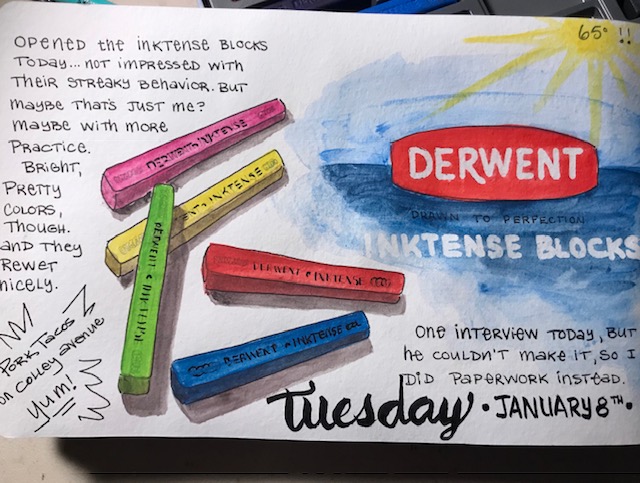 Opened the Inktense Blocks
today... not impressed with
their streaky behavior. But
maybe that's just me?
maybe with more
practice.
Bright,
pretty
colors,
though.
and they
rewet
nicely.
Pork Tacos
on Colley Avenue
yum!
65° !!
DERWENT
DRAWN TO PERFECTION
INKTENSE BLOCKS
DERWENT INKTENSE
INKTENSE
DERWENT INKTENSE
DERWENT INKTENSE
DERWENT INKTENSE
One interview today, but
he couldn't make it, so I
did paperwork instead.
Tuesday • January 8TH •